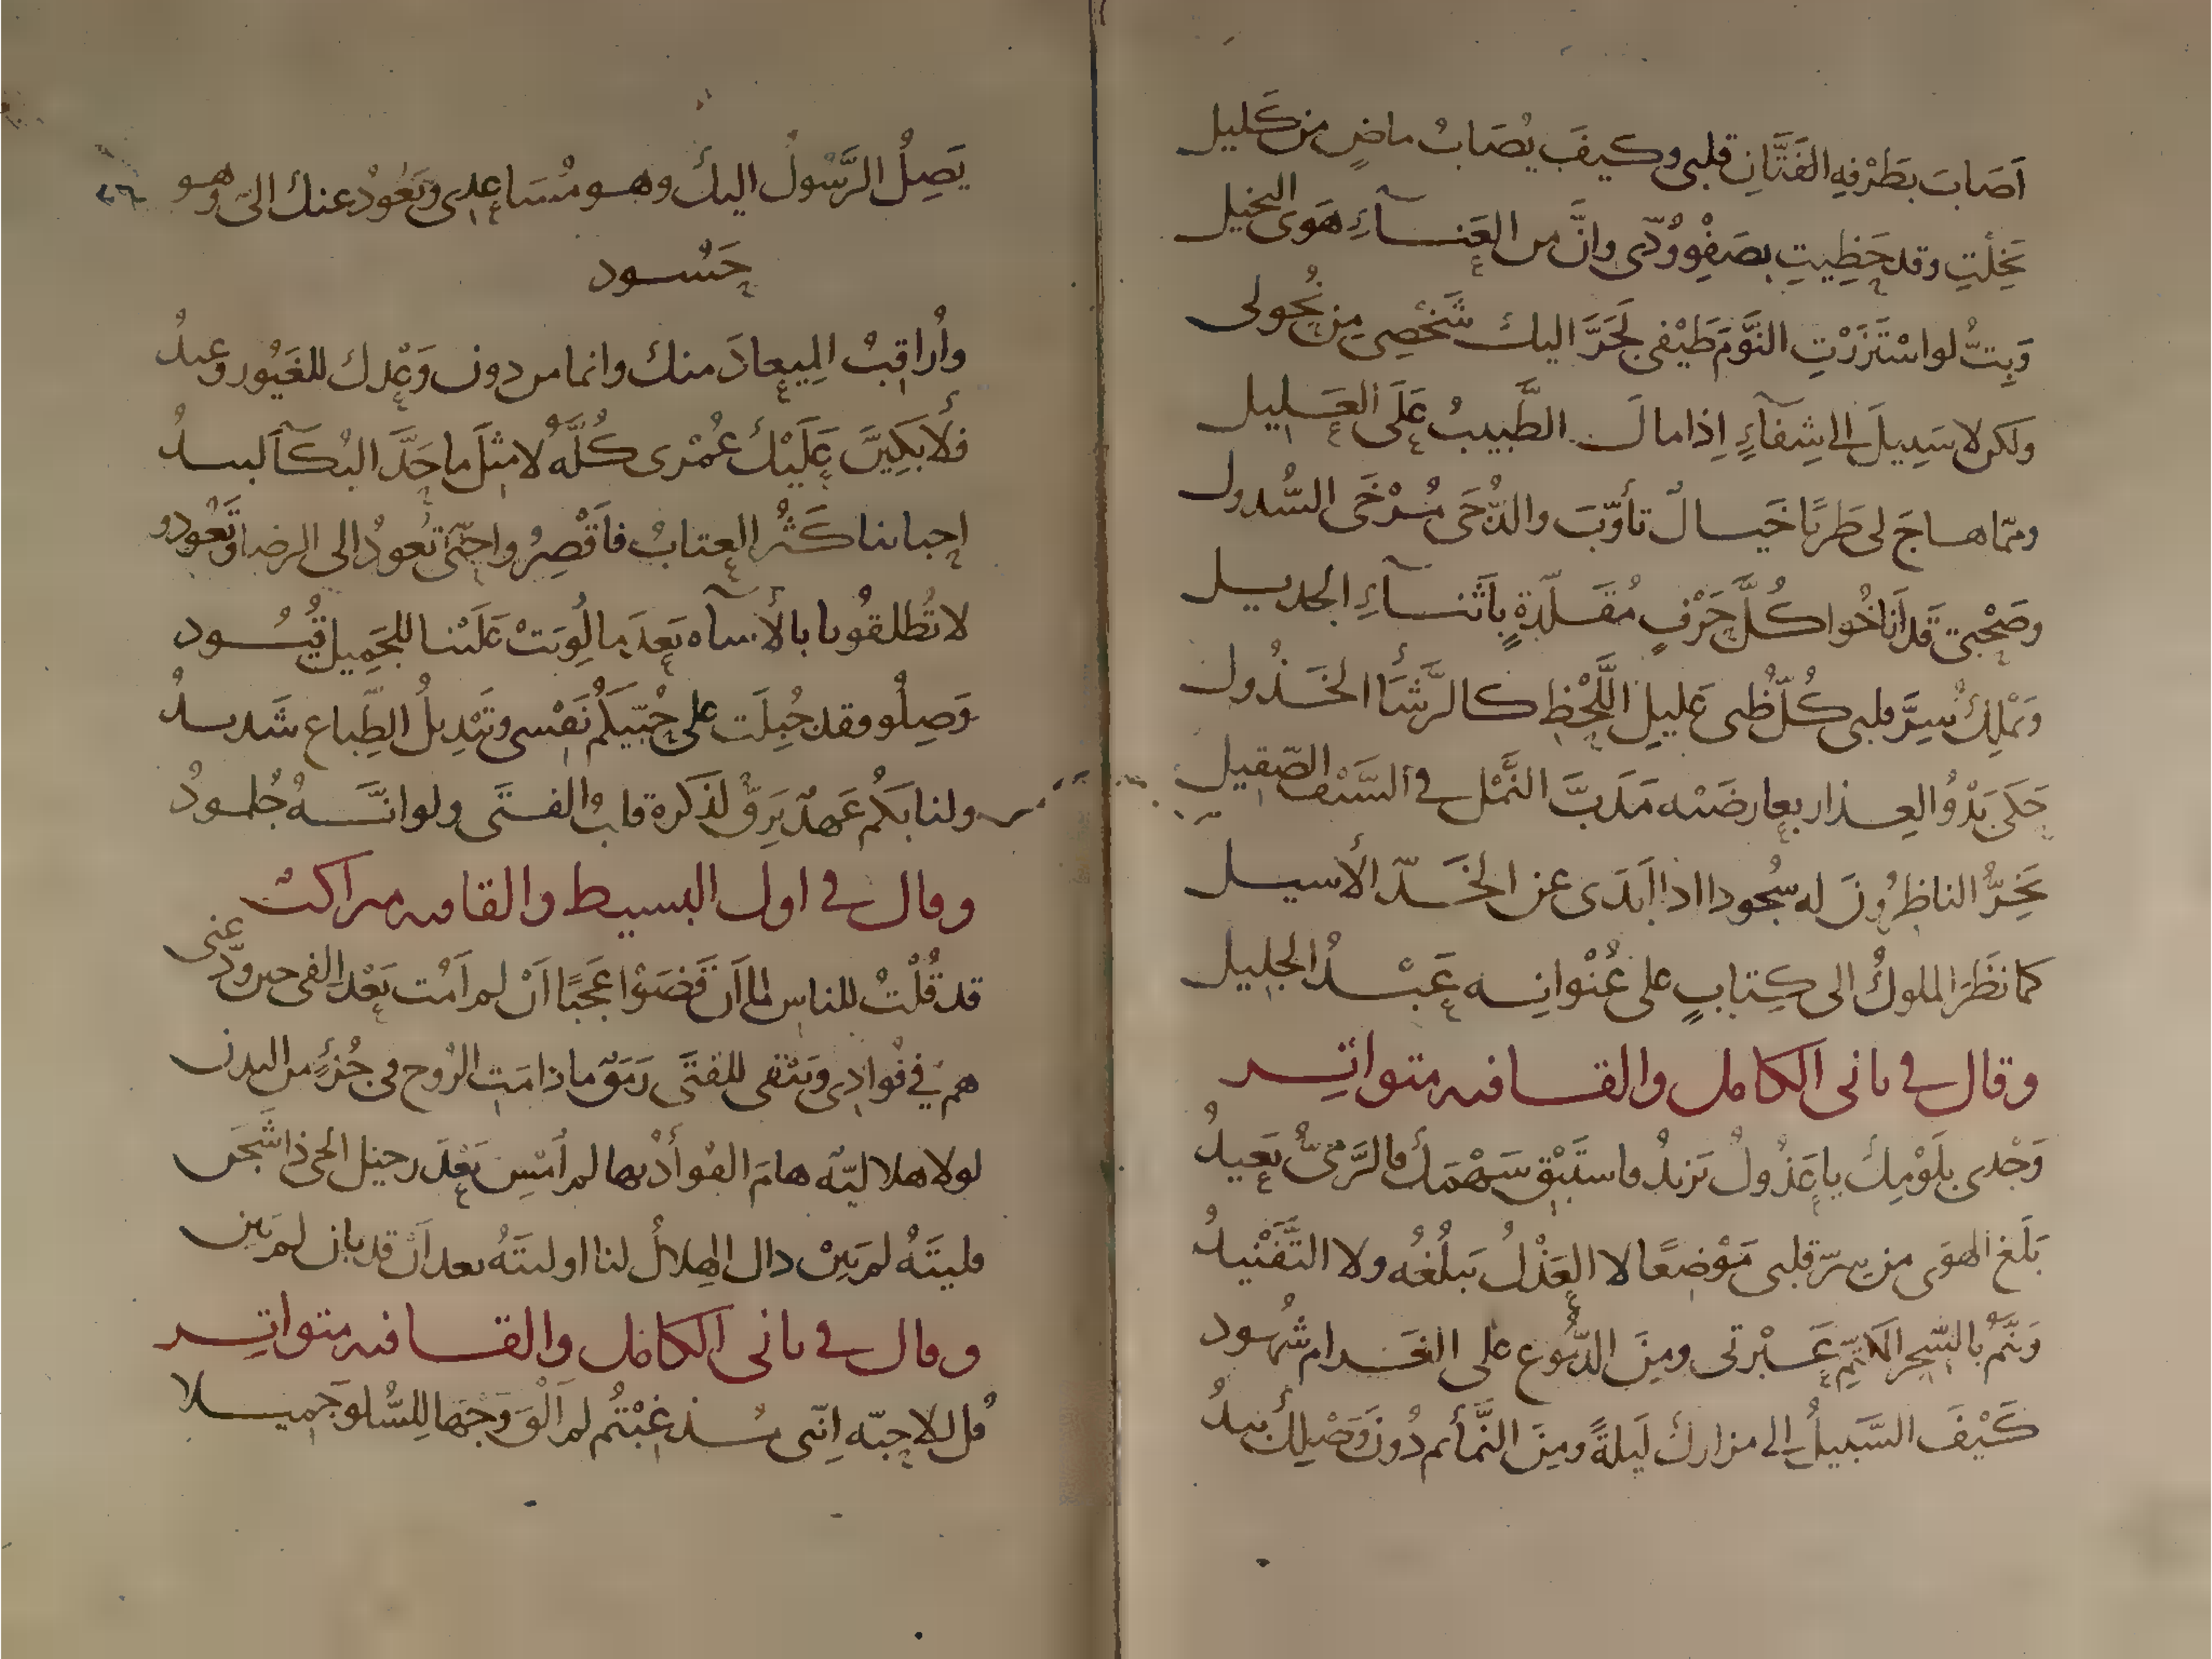 اَصَابَ بطَرْفِهِ الفَتَّانِ قلبى وكيفَ يُصَابُ ماضٍ من كَليل
بَخِلْتِ وقد حَظِيتِ بصَفْوِ وُدّى وانَّ من العَنــآءِ هَوَى البخيل
وَبِتُّ لو اسْتَزَرْتِ النَّوْمَ طَيْفى لجَرَّ اليك شَخْصِى مِن نُحُولى
ولكن لا سَبِيلَ الى شِفآءٍ اِذا مالَ الطَّبيبُ عَلَى العَليل
وممّا هاجَ لى طَرَبًا خَيالٌ تأوّبَ والدُّجَى مُرْخَى السُّدول
وصَحْبى قَد اَناخُوا كُلَّ حَرْفٍ مُقَلّدةٍ بِاَثنــآءِ الجديل
وَيَمْلِكُ سِرَّ قلبى كُلّ ظَبى عَليلِ اللَّحْظِ كالرَّشَأ الخَذُول
حَكَى بَدْوُ العِذار بعارضَيْه مَدَبَّ النَّمْل فى السَّيْف الصّقيل
يَخِرُّ الناظِرُونَ له سُجُودا اذا اَبَدَى عن الخَدّ الأسيل
كما نَظَرَ الملوكُ الى كِتابٍ على عُنْوانِه عَبْدُ الجليل
وقال فى ثانى الكامل والقافيه متواتِر
وَجْدى بِلَوْمِكَ يا عَذُولُ يَزيدُ فاستَبْقِ سَهْمَكَ فالرَّمىُّ بَعيدُ
بَلَغ الهوَى من سِرّ قلبى مَوْضِعًا لا العَذْلُ يَبلُغُه ولا التَّفْنيدُ
وَنَمَّ بالسِّر المكَتّمِ عَبْرتى ومِنَ الدُّموع على الغَرام شُهود
كَيْفَ السَّبيلُ الى مزارك لَيلةً ومِنَ النَّمائم دُونَ وَصْلِك بيدُ
يَصِلُ الرَّسُولُ اليكَ وهو مُسَاعِدى ويَعُودُ عنك الىّ وهو
حَسُود
واُراقِبُ المِيعادَ منك وانما من دون وَعْدِك للغَيُور وعيدُ
فَلأبكِيَنَّ عَلَيْكَ عُمْرى كُلَّهُ لا مثْلَ ما حَدَّ البُكآَ لبيدُ
احبابنا كَثُرَ العِتابُ فاَقْصِرُوا حتّى تَعودُ الى الرضا وتَعُودو
لا تُطلقُونا بالأساه بَعدَ ما لُوِيَتْ عَلَيْنا للجَمِيل قُيُود
وَصِلُو فقد جُبِلَت على حُبّيكُم نَفْسى وتَبْدِيلُ الطِّباع شَديدُ
ولنا بكُم عَهدٌ يَرِقُّ لذكره قلبُ الفتَى ولو انّــهُ جُلمودُ
وقال فى اول البسيط والقافيه متراكب
قد قُلْتُ للناس لما اَن قَضَوْا عَجَبًا اَنْ لم اَمُت بَعْد الفى حين ودّعنى
هم فى فُوادِى ويَبْقى للفتَى رَمَقٌ ما دامَت الرُوح فى جُزءٍ من البدن
لولا هلاليّه هامَ الفوأدُ بها لم اُمْسِ بَعْدَ رحيل الحى ذا شَجَن
فليتَهُ لم يَبِنْ ذاك الهِلالُ لنا او ليتَهُ بعد اَنْ قد بان لم يَبِن
وقال فى ثانى الكامل والقافيه متواتِر
قُل للاحِبّه اِنّنى مُذ غِبْتُم لم اَلْقَ وَجْهًا لِلسُّلو جَميلا